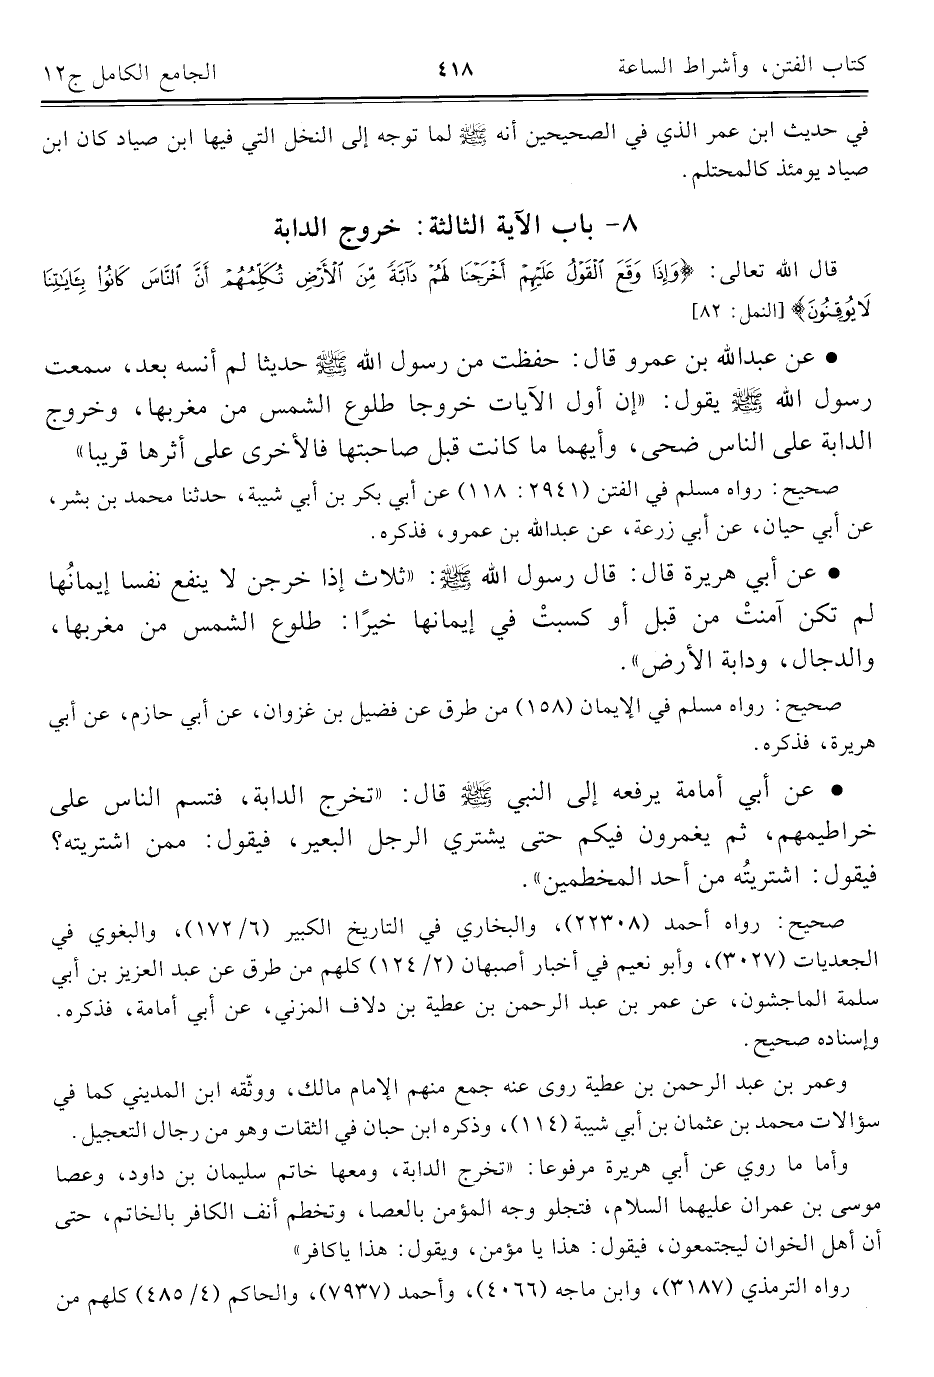 كتاب الفتن، وأشراط الساعة ٤١٨ الجامع الكامل ج١٢
في حديث ابن عمر الذي في الصحيحين أنه ﷺ لما توجه إلى النخل التي فيها ابن صياد كان ابن
صياد يومئذ كالمحتلم.
٨- باب الآية الثالثة: خروج الدابة
قال الله تعالى: ﴿وَإِذَا وَقَعَ ٱلْقَوْلُ عَلَيْهِمْ أَخْرَجْنَا لَهُمْ دَآبَّةً مِّنَ ٱلْأَرْضِ تُكَلِّمُهُمْ أَنَّ ٱلنَّاسَ كَانُوا۟ بِـَٔايَٰتِنَا
لَا يُوقِنُونَ﴾ [النمل: ٨٢]
● عن عبدالله بن عمرو قال: حفظت من رسول الله ﷺ حديثا لم أنسه بعد، سمعت
رسول الله ﷺ يقول: «إن أول الآيات خروجا طلوع الشمس من مغربها، وخروج
الدابة على الناس ضحى، وأيهما ما كانت قبل صاحبتها فالأخرى على أثرها قريبا»
صحيح: رواه مسلم في الفتن (٢٩٤١: ١١٨) عن أبي بكر بن أبي شيبة، حدثنا محمد بن بشر،
عن أبي حيان، عن أبي زرعة، عن عبدالله بن عمرو، فذكره.
● عن أبي هريرة قال: قال رسول الله ﷺ: «ثلاث إذا خرجن لا ينفع نفسا إيمانُها
لم تكن آمنتْ من قبل أو كسبتْ في إيمانها خيرًا: طلوع الشمس من مغربها،
والدجال، ودابة الأرض».
صحيح: رواه مسلم في الإيمان (١٥٨) من طرق عن فضيل بن غزوان، عن أبي حازم، عن أبي
هريرة، فذكره.
● عن أبي أمامة يرفعه إلى النبي ﷺ قال: «تخرج الدابة، فتسم الناس على
خراطيمهم، ثم يغمرون فيكم حتى يشتري الرجل البعير، فيقول: ممن اشتريته؟
فيقول: اشتريتُه من أحد المخطمين».
صحيح: رواه أحمد (٢٢٣٠٨)، والبخاري في التاريخ الكبير (٦/ ١٧٢)، والبغوي في
الجعديات (٣٠٢٧)، وأبو نعيم في أخبار أصبهان (٢/ ١٢٤) كلهم من طرق عن عبد العزيز بن أبي
سلمة الماجشون، عن عمر بن عبد الرحمن بن عطية بن دلاف المزني، عن أبي أمامة، فذكره.
وإسناده صحيح.
وعمر بن عبد الرحمن بن عطية روى عنه جمع منهم الإمام مالك، ووثّقه ابن المديني كما في
سؤالات محمد بن عثمان بن أبي شيبة (١١٤)، وذكره ابن حبان في الثقات وهو من رجال التعجيل.
وأما ما روي عن أبي هريرة مرفوعا: «تخرج الدابة، ومعها خاتم سليمان بن داود، وعصا
موسى بن عمران عليهما السلام، فتجلو وجه المؤمن بالعصا، وتخطم أنف الكافر بالخاتم، حتى
أن أهل الخوان ليجتمعون، فيقول: هذا يا مؤمن، ويقول: هذا ياكافر»
رواه الترمذي (٣١٨٧)، وابن ماجه (٤٠٦٦)، وأحمد (٧٩٣٧)، والحاكم (٤/ ٤٨٥) كلهم من